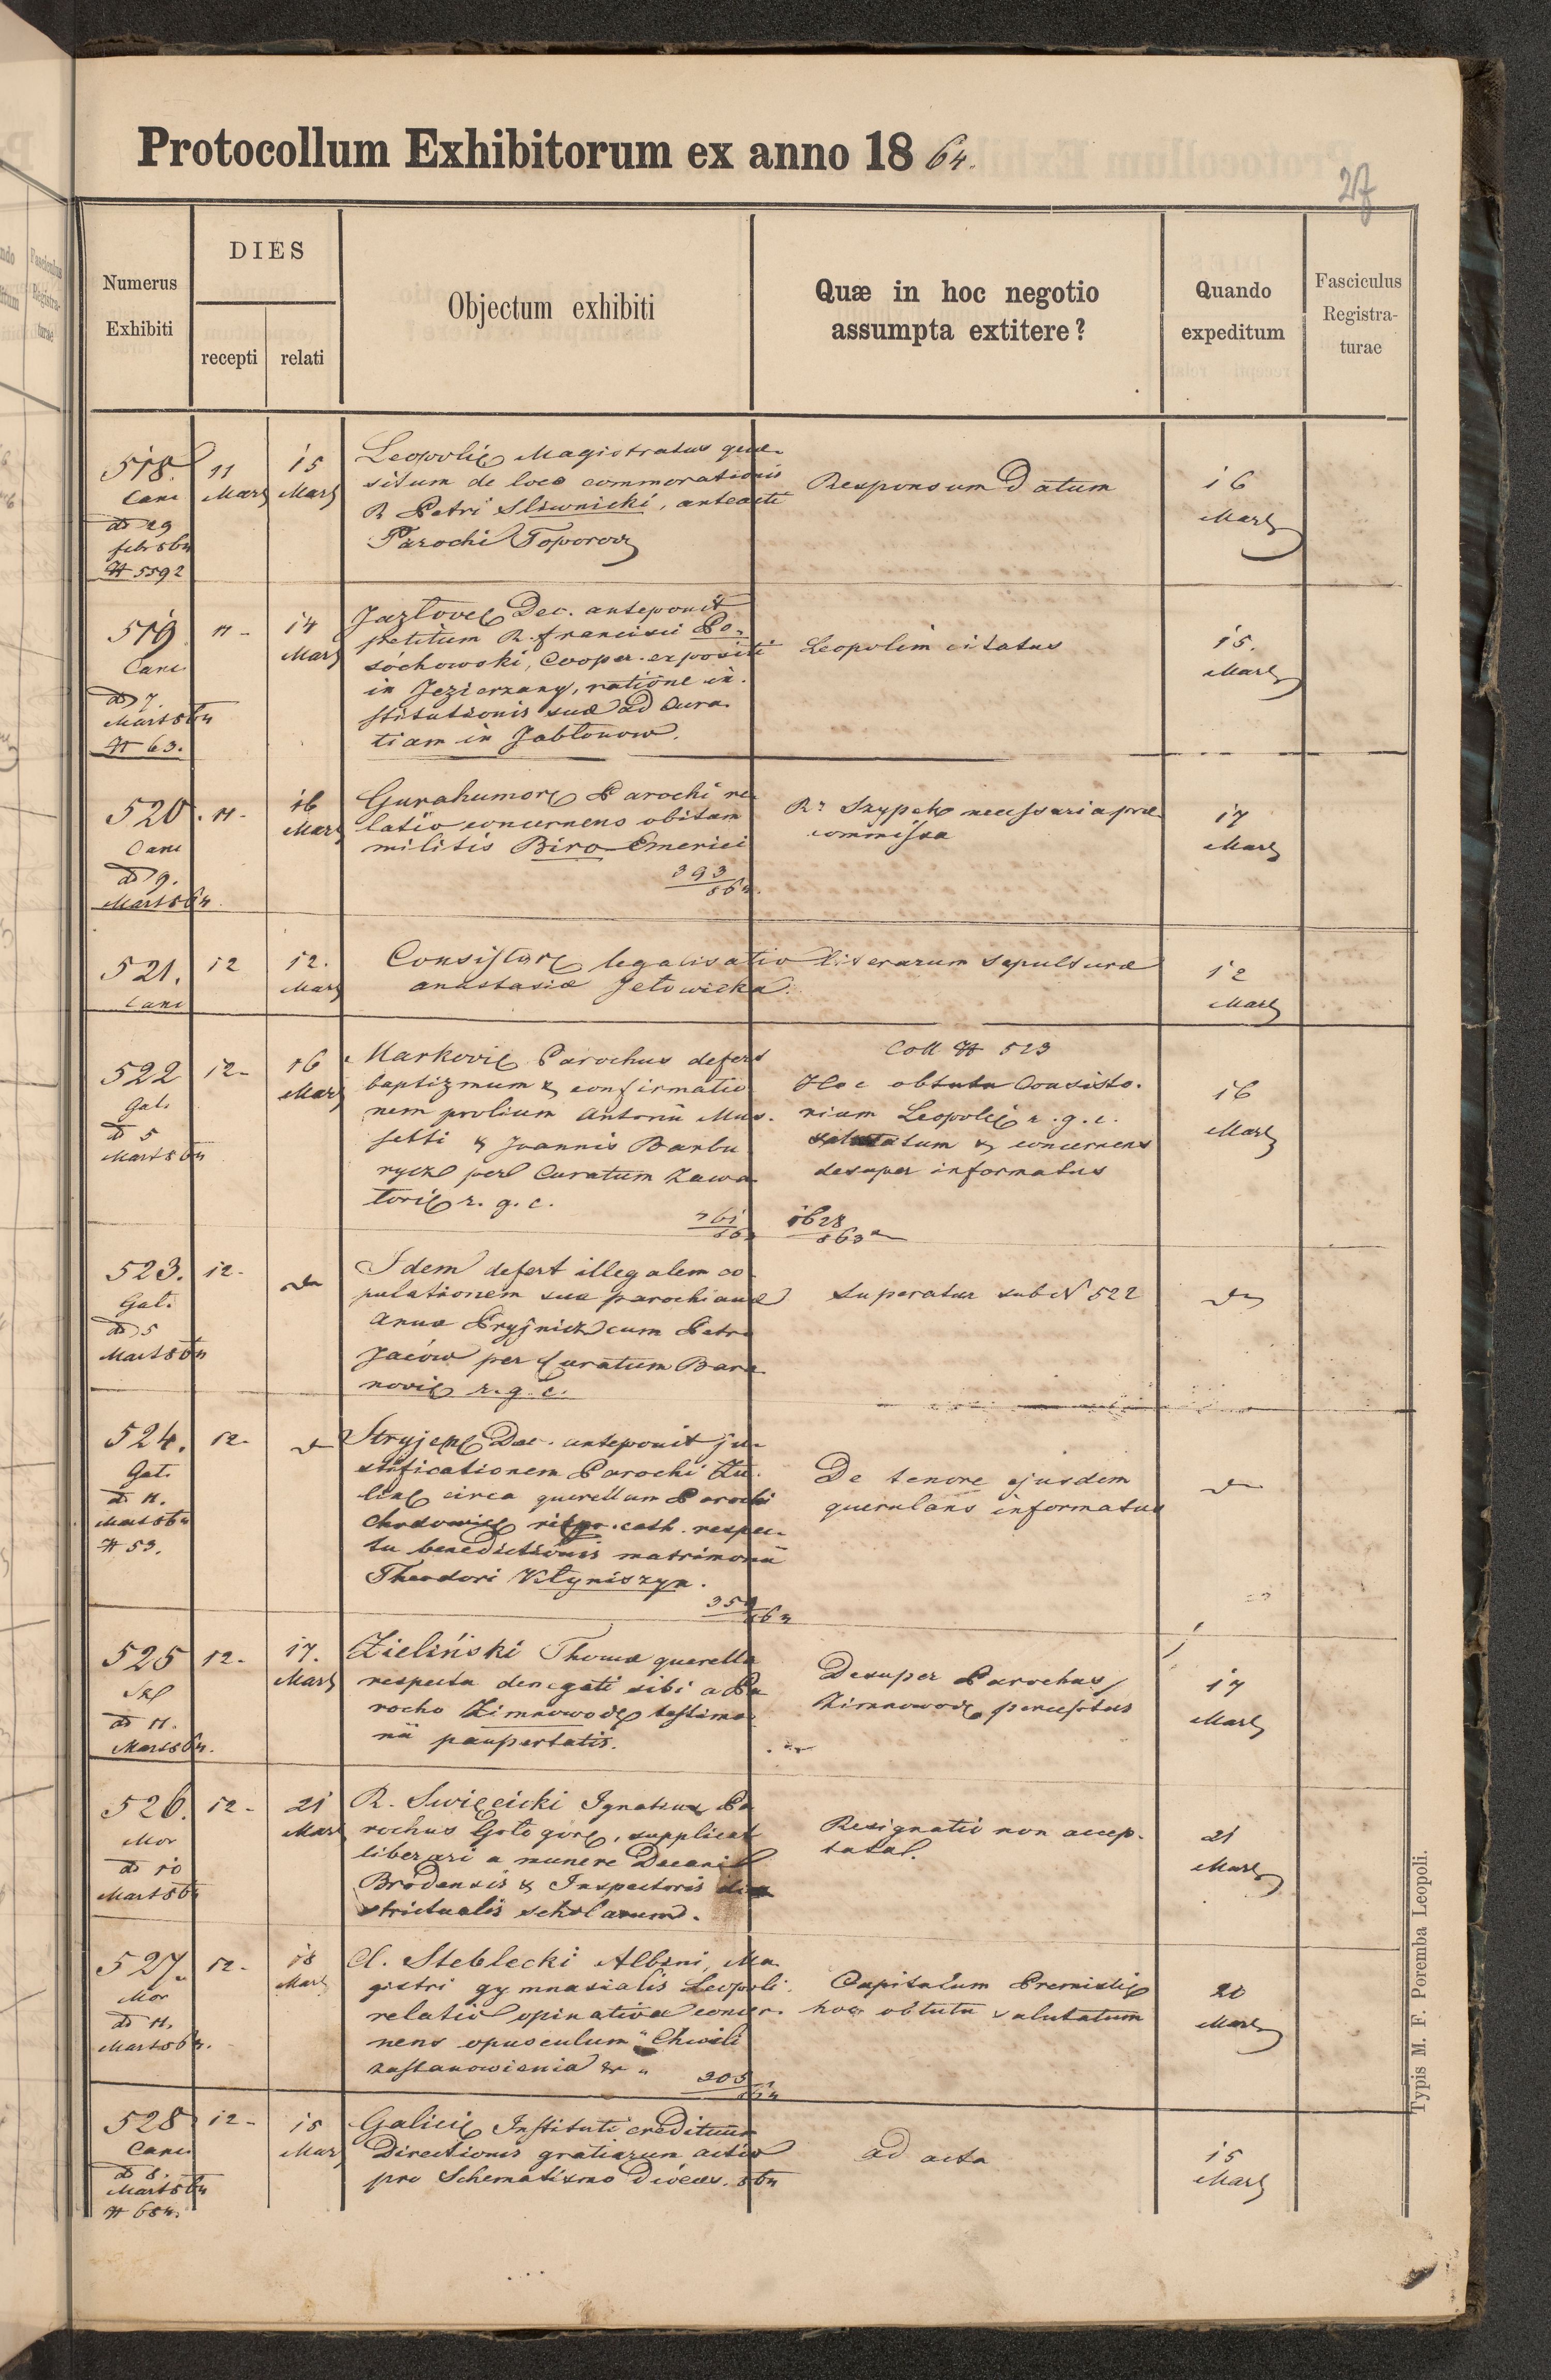 Protocollum Exhibitorum ex anno 1864.
27
Numerus Exhibiti
DIES
recepti
relati
Objectum exhibiti
Quæ in hoc negotio assumpta extitere?
Quando expeditum
Fasciculus Registra-turae
518.
Canc
dd 29
febr 864
N 5592
11 Mart
15 Mart
Leopolis Magistratus quæ-
situm de loco commorationis
R Petri Sliwnicki, anteacti
Parochi Toporow
Responsum Datum
16
Mart
519
Canc
dd 7.
Mart 864
N 63.
11 -
14 Mart
Jazlovec Dec. anteponit
petitum R. Francisci Po-
sochowski, Cooper. expositi
in Jezierzany, ratione in-
stitutionis suæ ad Cura-
tiam in Jabłonow.
Leopolim citatus
15.
Mart
520.
Canc
dd 9.
Mart 864.
11 -
16 Mart
Gurahumore Parochi re-
latio concernens obitum
militis Biro Emerici
393
864.
Rs Szypek necessaria præ-
commissa
17
Mart
521.
Canc
12
12. Mart
Consistore legalisatio literarum sepulturæ
Anastasiæ Jełowicka.
12
Mart
522
Gal.
dd 5
Mart 864
12 -
16 Mart
Markovic Parochus defert
baptizmum & confirmatio-
nem prolium Antonii Mus-
setti & Joannis Barbu-
rycz per Curatum Zawa-
toric r. g. c.
761
86
Coll N 523
Hoc obtutu Consisto-
rium Leopolis r. g. c.
salutatum & concernens
desuper informatus
1628
863
16
Mart
523.
Gal.
dd 5
Mart 864
12 -
do
Idem defert illegalem co-
pulationem suæ parochianæ
Annæ Pryjnick cum Petro
Jaców per Curatum Bara-
novic r. g. c.
Superatur sub N 522
do
524.
Gal.
dd 11.
Mart 864
N 53.
12 -
do
Stryjens Dec. anteponit ju-
stificationem Parochi Zu-
line circa querellam Parochi
Chodowice rit. gr. cath. respec-
tu benedictionis matrimonii
Theodori Kłyniszyn.
354
864
De tenore ejusdem
querulans informatus
do
525
Skl
dd 11.
Mart 864.
12 -
17. Mart
Zieliński Thomæ querella
respectu denegati sibi a Pa-
rocho Zimnowode testimo-
nii paupertatis.
Desuper Parochus
Zimnowode percussitus
17
Mart
526.
Mor
dd 10
Mart 864
12 -
21 Mart
R. Swięcicki Ignatius Pa-
rochus Gołogore, supplicat
liberari a munere Decani
Brodensis & Inspectoris di-
strictualis scholarum.
Resignatio non accep-
tata.
21
Mart
527.
Mor
dd 11.
Mart 864.
12 -
18 Mart
Cl. Steblecki Albini, Ma-
gistri gymnasialis Leopoli
relatio opinativa concer-
nens opusculum "Chwili
zastanowienia &"
205
864
Capitulum Premislie
hoc obtutu salutatum
20
Mart
528
Canc
dd 8.
Mart 864
N 684.
12 -
15 Mart
Galicie Instituti creditium
Directionis gratiarum actio
pro Schematismo Dioeces. 864
ad acta
15
Mart
Typis M. F. Poremba Leopoli.